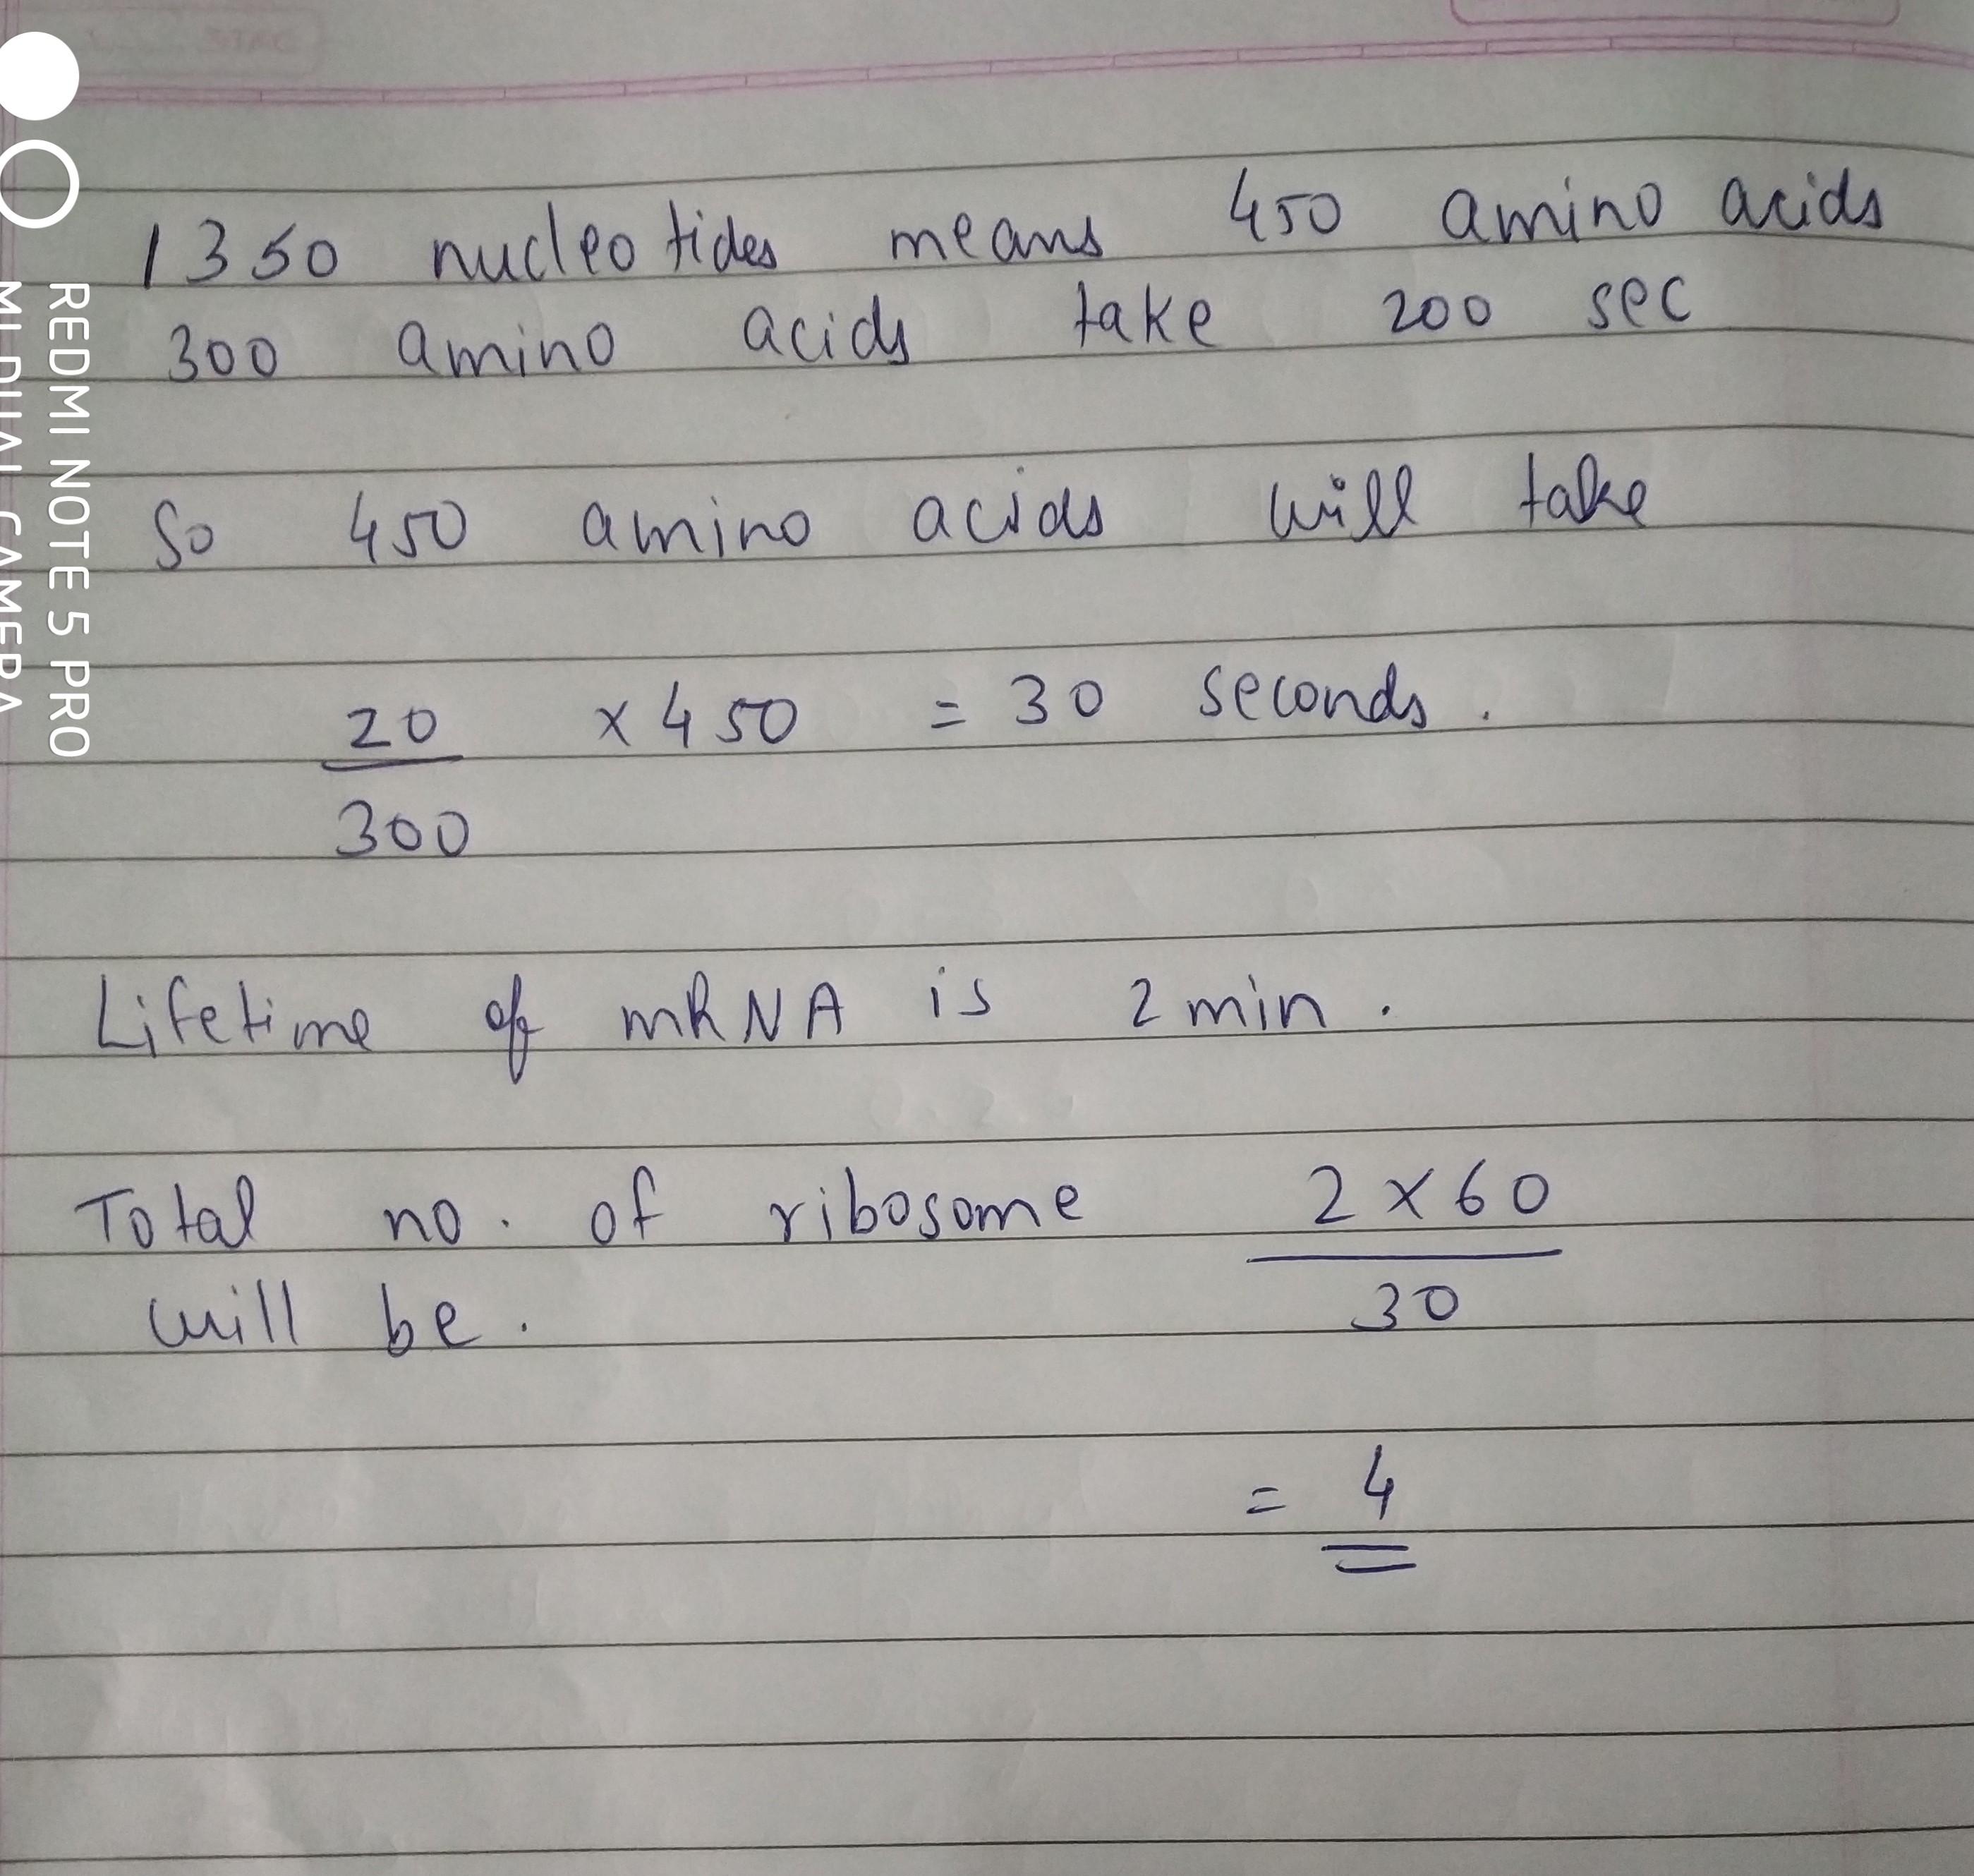 1350 nucleotides means 450 amino acids
300 amino acids take 200 sec
So 450 amino acids will take
20 × 450 = 30 seconds.
300
Lifetime of mRNA is 2 min.
Total no. of ribosome 2 × 60
will be. 30
= 4
REDMI NOTE 5 PRO
MI DUAL CAMERA